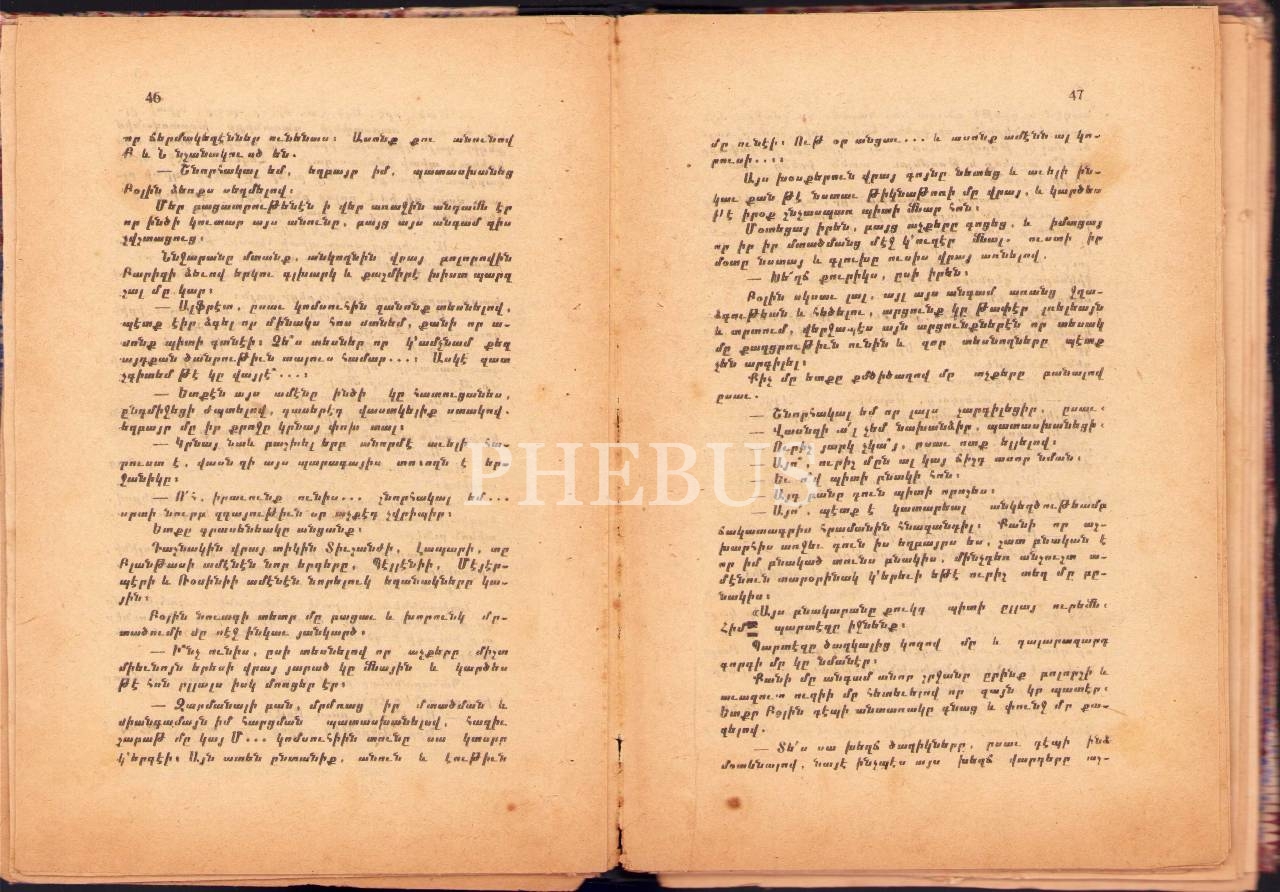 46
որ ճերմակեղէններ ունենաս։ Ասոնք քու անունով
Բ և Ն նշանակուած են.
— Շնորհակալ եմ, եղբայր իմ, պատասխանեց
Բօլին ձեռքս սեղմելով։
Մեր բացատրութենէն ի վեր առաջին անգամն էր
որ ինծի կուտար այս անունը, բայց այս անգամ զիս
չվշտացուց։
Ննջարանը մտանք, անկողնին վրայ բոլորովին
Բարիզի ձեւով երկու գլխարկ և քաշմիրէ խիստ պարզ
շալ մը կար։
— Ալֆրէտ, ըսաւ կոմսուհին զանոնք տեսնելով,
պէտք էիր ձգել որ մինակս հոս մտնեմ, քանի որ ա-
սոնք պիտի գտնէի։ Չե՞ս տեսներ որ կ'ամչնամ քեզ
այդքան ծանրութիւն տալուս համար...։ Ասկէ զատ
չգիտեմ թէ կը վայլէ՞...։
— Ետքէն այս ամէնը ինծի կը հատուցանես,
ընդմիջեցի ժպտելով, դասերէդ վաստկելիք ստակով.
եղբայր մը իր քրոջը կրնայ փոխ տալ։
— Կրնայ նաև բաշխել երբ անորմէ աւելի հա-
րուստ է, վասն զի այս պարագայիս տուողն է եր-
ջանիկը։
— Ո՛հ, իրաւունք ունիս... շնորհակալ եմ...
սրտի նուրբ զգայութիւն մը աչքէդ չվրիպիր։
Ետքը գրասենեակը անցանք։
Դաշնակին վրայ տիկին Տիւշանժի, Լապարի, տը
Բլանթատի ամէնէն նոր երգերը, Պէլլէնիի, Մէյէր-
պէրի և Ռօսինիի ամէնէն նորելուկ եղանակները կա-
յին։
Բօլին նուագի տետր մը բացաւ և խորունկ մը-
տածումի մը մէջ ինկաւ յանկարծ.
— Ի՞նչ ունիս, ըսի տեսնելով որ աչքերը միշտ
միեւնոյն երեսի վրայ յառած կը մնային և կարծես
թէ հոն ըլլալս իսկ մոռցեր էր։
— Զարմանալի բան, մրմռաց իր մտածման և
միանգամայն իմ հարցման պատասխանելով, հազիւ
շաբաթ մը կայ Մ... կոմսուհիին տունը սա կտորը
կ'երգէի։ Այն ատեն ընտանիք, անուն և էութիւն
47
մը ունէի։ Ութ օր անցաւ... և ասոնք ամէնն ալ կո-
րուսի...։
Այս խօսքերուն վրայ գոյնը նետեց և աւելի ին-
կաւ քան թէ նստաւ թիկնաթոռի մը վրայ, և կարծես
թէ իրօք շնչասպառ պիտի մնար հոն։
Մօտեցայ իրեն, բայց աչքերը գոցեց, և իմացայ
որ իր իր մտածմանց մէջ կ'ուզէր մնալ. ուստի իր
մօտը նստայ և գլուխը ուսիս վրայ առնելով.
— Խե՜ղճ քուրիկս, ըսի իրեն։
Բօլին սկսաւ լալ, այլ այս անգամ առանց ջղա-
ձգութեան և հեծելու, արցունք կը թափէր լռելեայն
և տրտում, վերջապէս այն արցունքներէն որ տեսակ
մը քաղցրութիւն ունին և զոր տեսնողները պէտք
չեն արգիլել։
Քիչ մը ետքը քմծիծաղով մը աչքերը բանալով
ըսաւ.
— Շնորհակալ եմ որ լալս չարգիլեցիր, ըսաւ։
— Վասնզի ա՛լ չեմ նախանձիր, պատասխանեցի։
— Ուրիշ յարկ չկա՞յ, ըսաւ ոտք ելլելով։
— Այո՛, ուրիշ մըն ալ կայ ճիշդ ասոր նման։
— Եւ ո՞վ պիտի բնակի հոն։
— Այդ բանը դուն պիտի որոշես։
— Այո՛, պէտք է կատարեալ անկեղծութեամբ
ճակատագրիս հրամանին հնազանդիլ։ Քանի որ աշ-
խարհիս առջեւ դուն իս եղբայրս ես, շատ բնական է
որ իմ բնակած տունս բնակիս, մինչդեռ անշուշտ ա-
մէնուն տարօրինակ կ'երեւի եթէ ուրիշ տեղ մը բը-
նակիս։
«Այս բնակարանը քուկդ պիտի ըլլայ ուրեմն։
Հիմ պարտէզը իջնենք։
Պարտէզը ծաղկալից կողով մը և դալարազարդ
գորգի մը կը նմանէր։
Քանի մը անգամ անոր շրջանը ըրինք բոլորշի և
աւազուտ ուղիի մը հետեւելով որ զայն կը պատէր։
Ետքը Բօլին դէպի անտառակը գնաց և փունջ մը քա-
ղելով.
— Տե՛ս սա խեղճ ծաղիկները, ըսաւ դէպի ինծ
մօտենալով, նայէ ինչպէս այս խեղճ վարդերը աչ-
PHEBUS